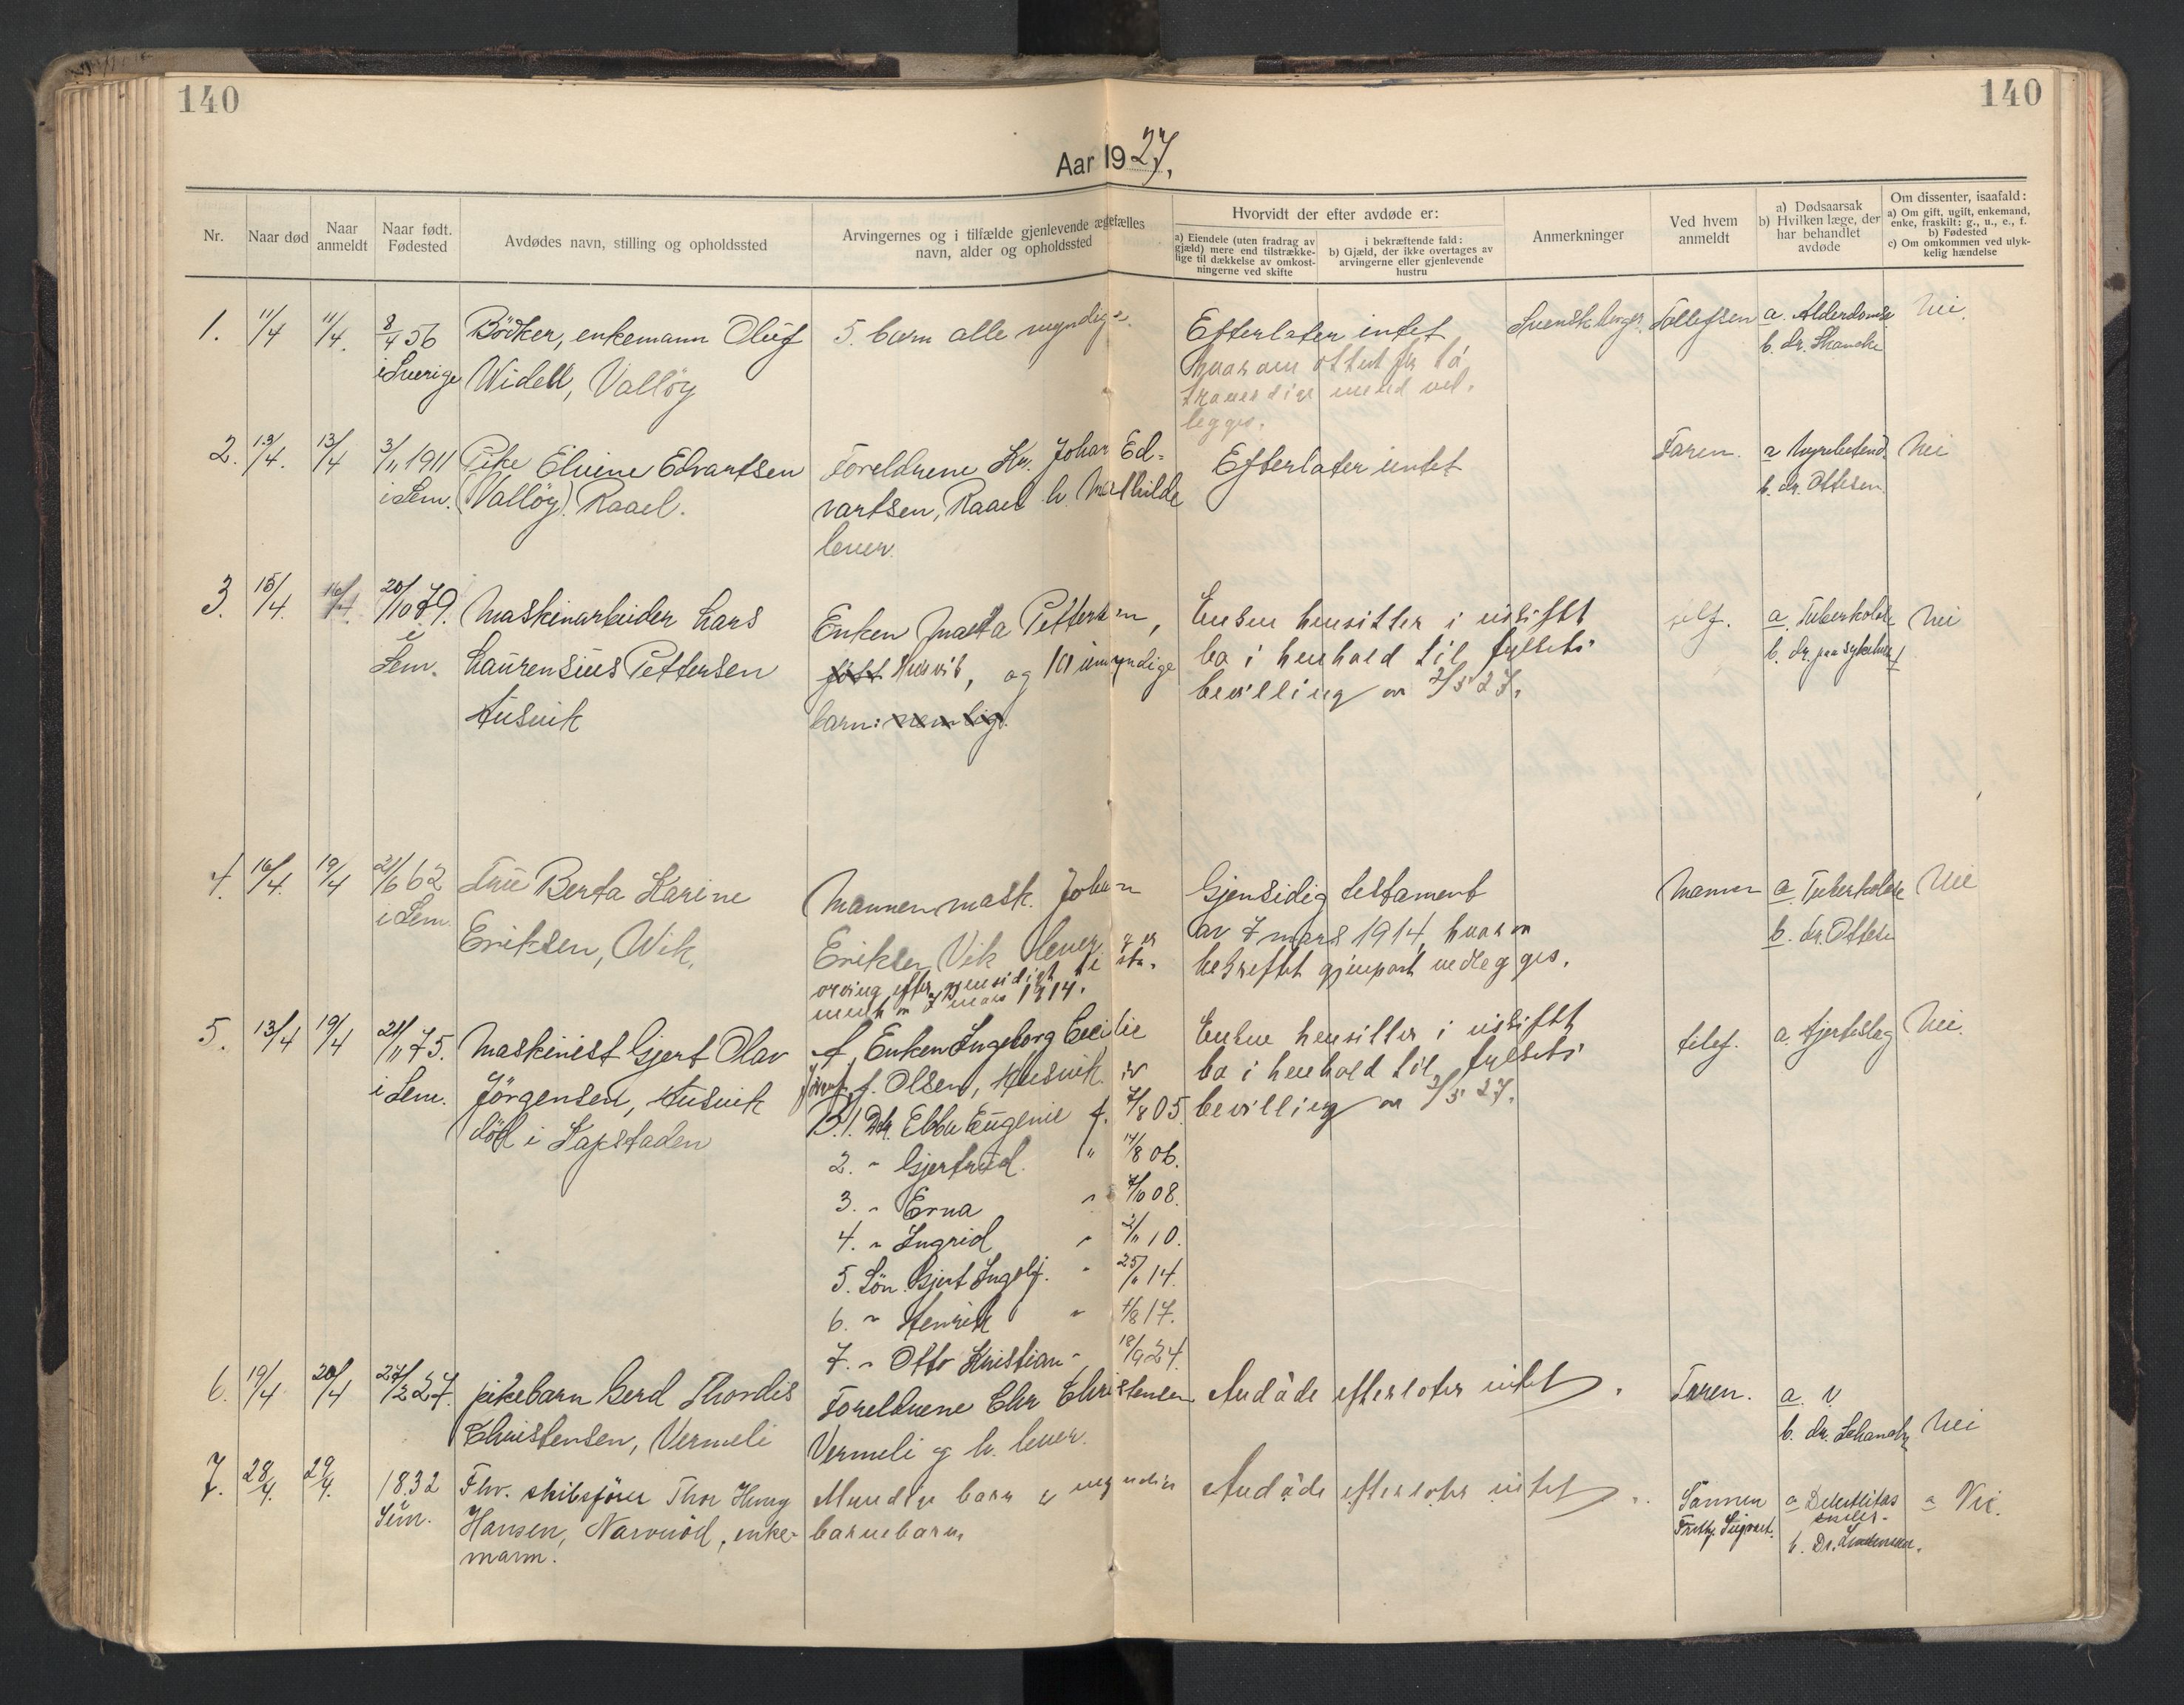 140
140
Aar 1927.
Nr.
Naar død
Naar
anmeldt
Naar født.
Fødested
Avdødes navn, stilling og opholdssted
Arvingernes og i tilfælde gjenlevende ægtefælles
navn, alder og opholdssted
Hvorvidt der efter avdøde er:
a) Eiendele (uten fradrag av
gjæld) mere end tilstrække-
lige til dækkelse av omkost-
ningerne ved skifte
i bekræftende fald:
b) Gjæld, der ikke overtages av
arvingerne eller gjenlevende
hustru
Anmerkninger
Ved hvem
anmeldt
a) Dødsaarsak
b) Hvilken læge, der
har behandlet
avdøde
Om dissenter, isaafald:
a) Om gift, ugift, enkemand,
enke, fraskilt: g., u., e., f.
b) Fødested
c) Om omkommen ved ulyk-
kelig hændelse
1.
11/4
11/4.
8/4 56
i Sverige
Bödker, enkemann Oluf
Widell, Vallöy
5. barn alle myndige.
Efterlater intet
hvorom attest fra to
troverdige mend ved-
legges.
Svensk borger.
Tollefsen
a. Alderdoms
b. dr. Skanche
Nei.
2.
13/4.
13/4
3/11 1911
i Sem.
Pike Elvine Edvartsen
(Vallöy). Raael.
Foreldrene Kr. Johan Ed-
vartsen, Raael h. Mathilde
lever.
Efterlater intet
Faren.
a Nyrebetend.
b. dr. Ottesen.
Nei
3.
15/4.
16/4.
20/10 79.
i
Sem.
Maskinarbeider Lars
Laurensius Pettersen
Husvik
Enken Marta Pettersen,
født Husvik, og 10 umyndige
barn: nemlig.
Enken hensitter i uskiftet
bo i henhold til fylkets
bevilling av 2/5 27.
telf.
a. Tuberkolose
b. dr. paa sykehuset
Nei
4.
16/4.
19/4
21/6 62
i Sem.
Frue Berta Karine
Eriksen, Wik.
Mannen mask. Johan
Eriksen Vik lever, er
arving efter gjensidigt testa-
ment av 7 mars 1914.
Gjensidig testament
av 7 mars 1914, hvorav
bekreftet gjenpart vedlegges.
Mannen
a. Tuberkolose
b. dr. Ottesen
Nei
5.
13/4
19/4
21/11 75.
i Sem.
Maskinist Gjert Olav
Jörgensen, Husvik
död i Kapstaden
A, Enken Ingeborg Cecilie
f. Olsen, Husvik.
B. 1. Dtr. Ebba Eugenie f. 7/8 05.
2. " Gjertrud. " 14/8 06.
3. " Erna " 7/10 08.
4. " Ingrid " 2/11 10.
5. Sön Gjert Ingolf. " 25/11 14.
6. " Henrik " 4/8 17.
7. " Otto Kristian " 18/9 24.
Enken hensitter i uskiftet
bo i henhold til fylkets
bevilling av 2/5 27.
telef.
a. Hjerteslag
Nei.
6.
19/4
20/4
27/2 27.
pikebarn Gerd Thordis
Christensen, Vermeli
Foreldrene Chr Christensen
Vermeli og h. lever.
Avdöde efterlater intet.
Faren.
a. ?
b. dr. Schanche
Nei
7.
28/4.
29/4.
1832
Sem.
Fhv. skibsfører Thor Henry
Hansen, Narverød, enke-
mann.
Myndige barn og myndige
barnebarn.
Avdöde efterlater intet.
Sønnen
Sigvart.
a Debilitas
senilis.
b. Dr.
a Nei.